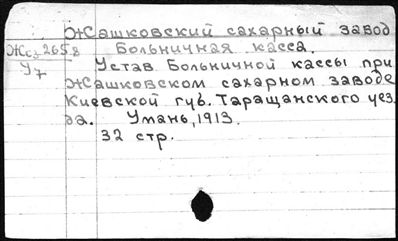 Жашковский сахарный завод
Больничная касса.
Устав Больничной кассы при
Жашковском сахарном заводе
Киевской губ. Таращанского уез.
да. Умань, 1913.
32 стр.